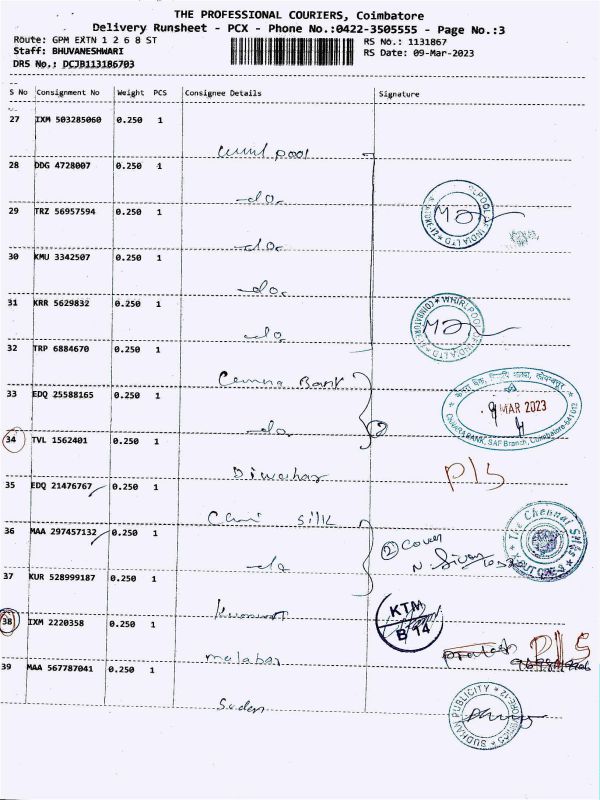 THE PROFESSIONAL COURIERS, Coimbatore
Delivery Runsheet - PCX - Phone No.:0422-3505555 - Page No.:3
Route: GPM EXTN 1 2 6 8 ST
RS No.: 1131867
Staff: BHUVANESHWARI
RS Date: 09-Mar-2023
DRS No.: DCJB113186703
S No Consignment No Weight PCS Consignee Details Signature
27 IXM 503285060 0.250 1
28 DDG 4728007 0.250 1
do
29 TRZ 56957594 0.250 1
do
30 KMU 3342507 0.250 1
do
31 KRR 5629832 0.250 1
do
WHIRLPOOL OF INDIA LTD
32 TRP 6884670 0.250 1
33 EDQ 25588165 0.250 1
do
9 MAR 2023
CANARA BANK, SAF Branch, Coimbatore-641 012
34 TVL 1562401 0.250 1
P/S
35 EDQ 21476767 0.250 1
silk
The Chennai Silks
36 MAA 297457132 0.250 1
do
2 Cover
37 KUR 528999187 0.250 1
KTM
B 14
38 IXM 2220358 0.250 1
malabar
P/S
39 MAA 567787041 0.250 1